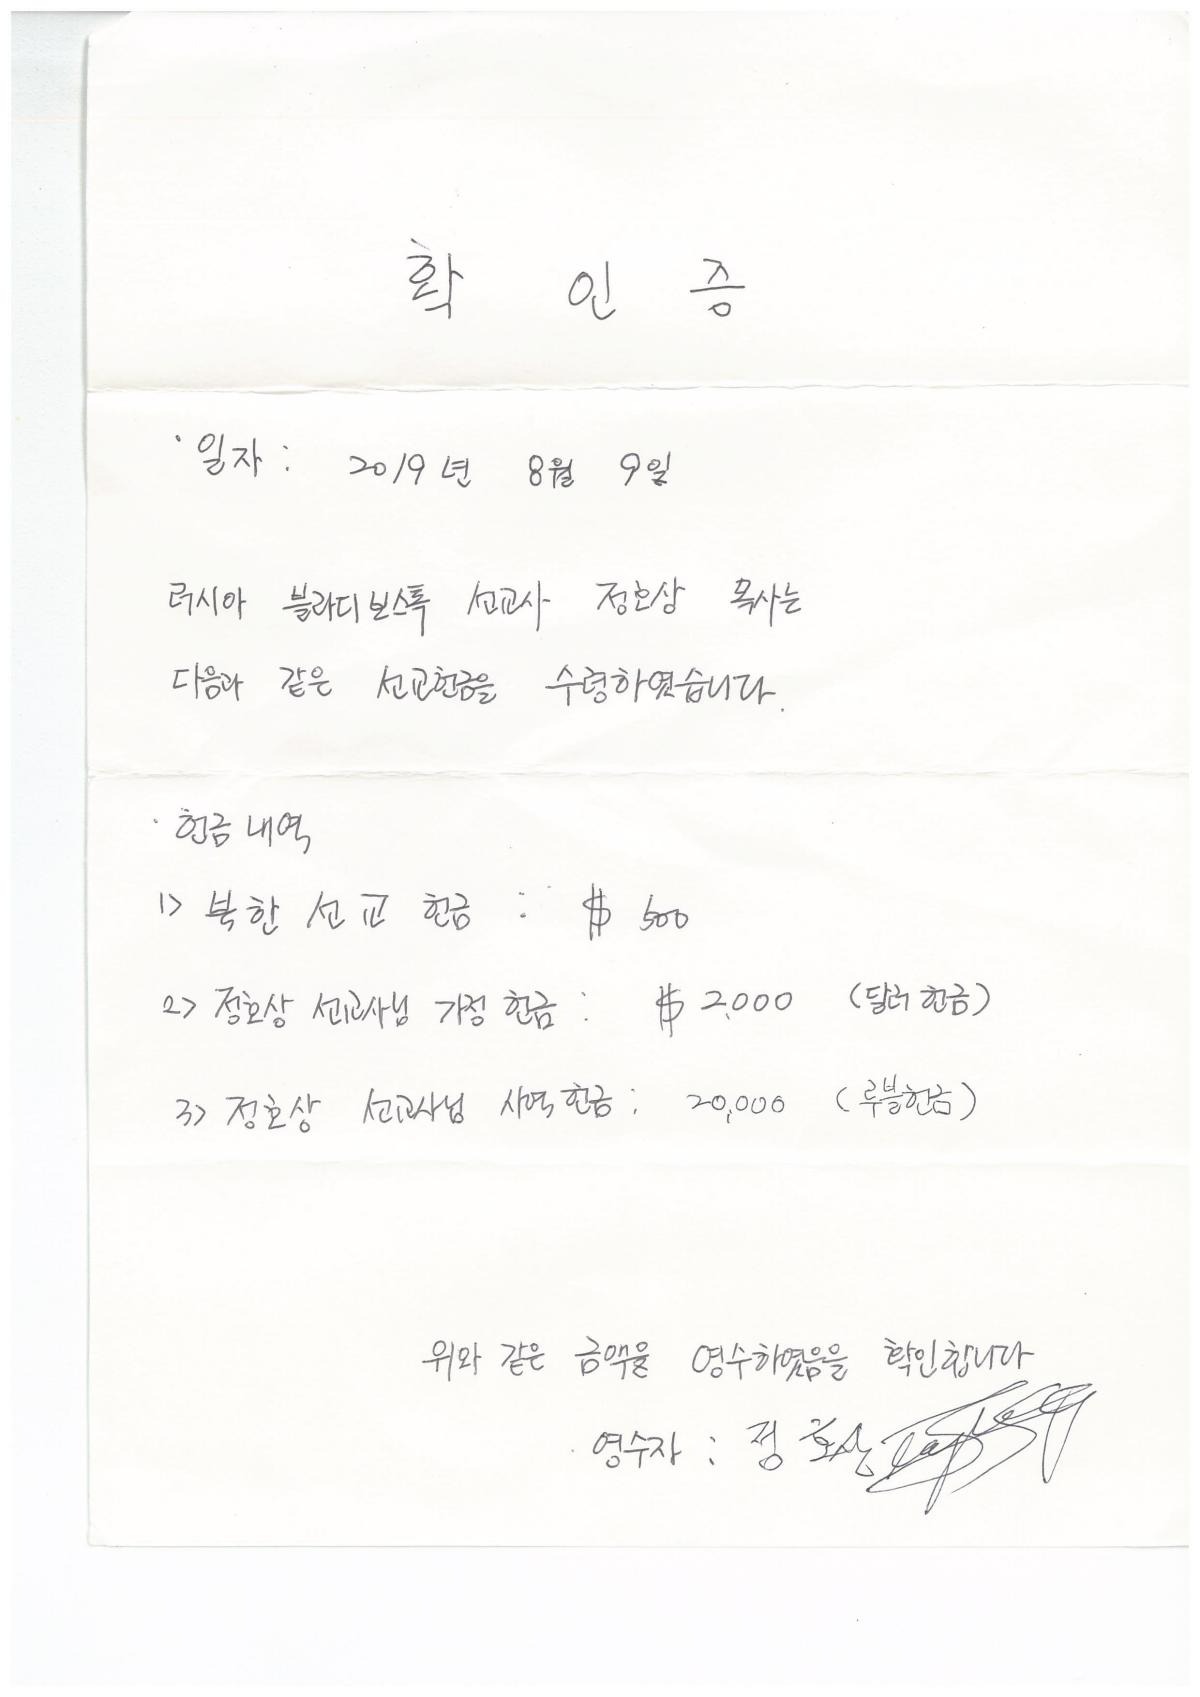 확 인 증
· 일자 : 2019년 8월 9일
러시아 블라디보스톡 선교사 정호상 목사는
다음과 같은 선교헌금을 수령하였습니다.
· 헌금 내역
1> 북한 선교 헌금 : $ 500
2> 정호상 선교사님 가정 헌금 : $ 2,000 (달러 헌금)
3> 정호상 선교사님 사역헌금 : 20,000 (루블헌금)
위와 같은 금액을 영수하였음을 확인합니다
· 영수자 : 정호상